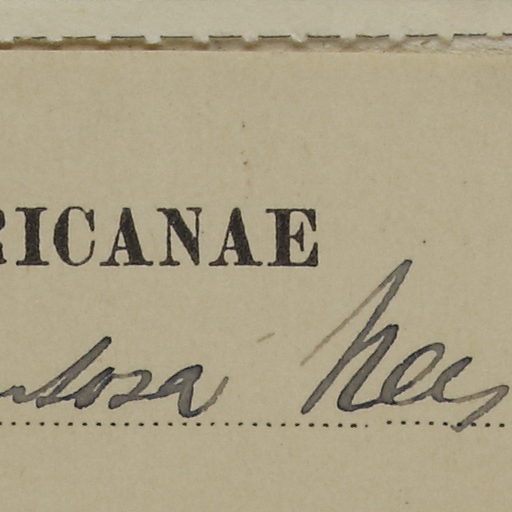 RICANAE
nsosa Nees